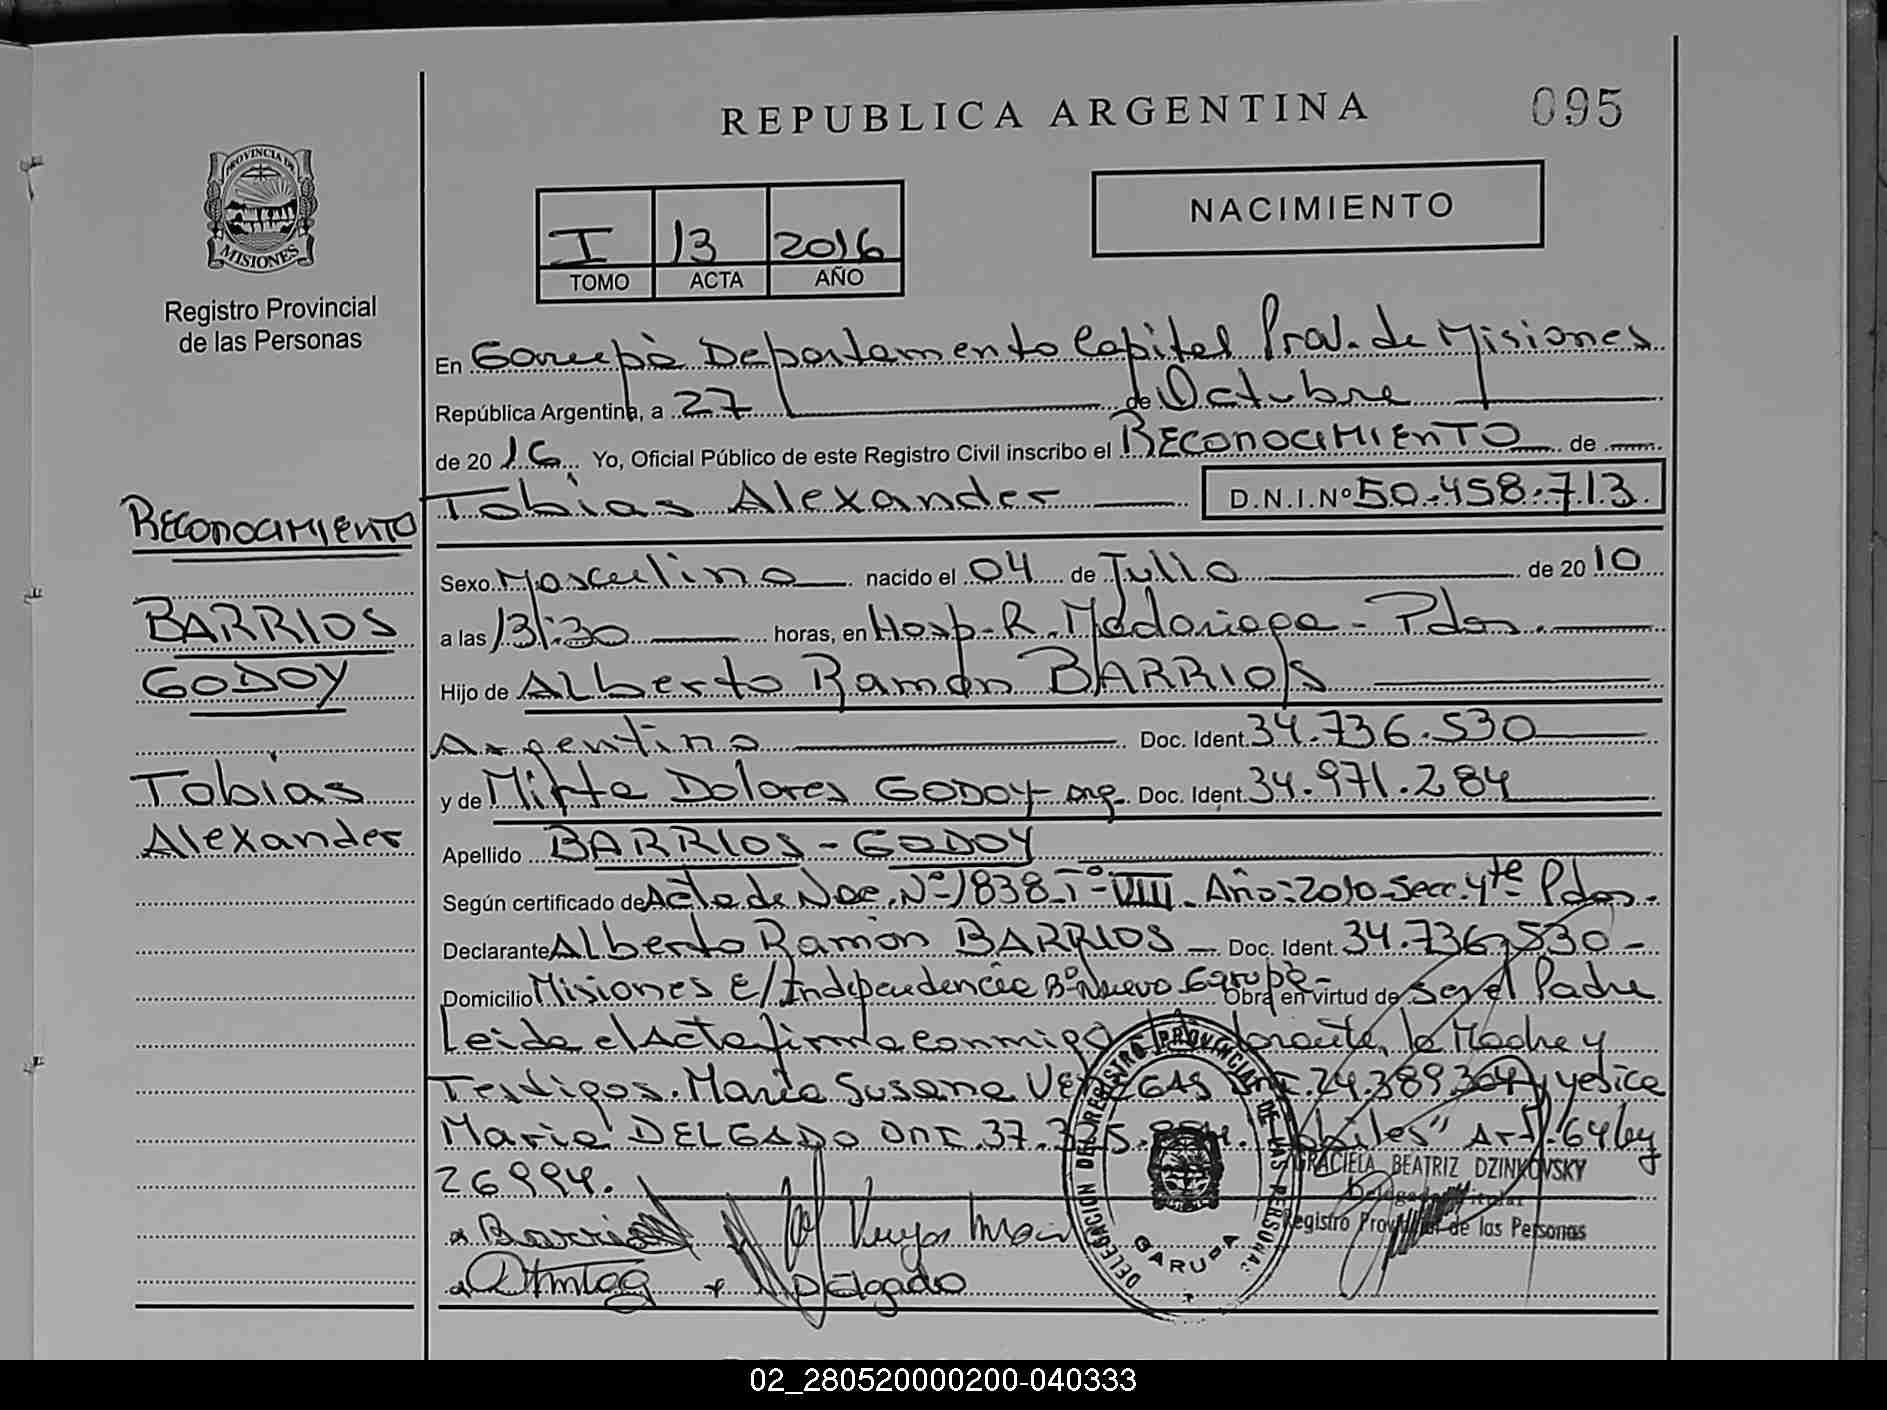 REPUBLICA ARGENTINA
095
PROVINCIA DE
MISIONES
Registro Provincial
de las Personas
I 13 2016
TOMO ACTA AÑO
NACIMIENTO
En Garupá Departamento Capital Prov. de Misiones
República Argentina, a 27 de Octubre
de 20 16 Yo, Oficial Público de este Registro Civil inscribo el RECONOCIMIENTO de
Tobias Alexander D.N.I.Nº 50.458.713.
RECONOCIMIENTO
BARRIOS
GODOY
Tobias
Alexander
Sexo Masculino nacido el 04 de Julio de 20 10
a las 13:30 horas, en Hosp. R. Madariaga - Pdas.
Hijo de Alberto Ramón BARRIOS
Argentino Doc. Ident. 34.736.530
y de Mirta Dolores GODOY - arg. Doc. Ident. 34.971.284
Apellido BARRIOS - GODOY
Según certificado de Acta de Nac. Nº 1838 - Tº - VIII - Año: 2010 - Secc. 4ta Pdas.
Declarante Alberto Ramón BARRIOS - Doc. Ident. 34.736.530 -
Domicilio Misiones E/ Independencia Bº Nuevo Garupá - Obra en virtud de Ser el Padre
Leida el Acta firma conmigo la Madre y
Testigos. Maria Susana DNI. 24.389.304, yesica
Maria DELGADO DNI. 37. "hábiles" Art. 64 ley
26994.
GRACIELA BEATRIZ DZINKOVSKY
Delegada Titular
Registro Provincial de las Personas
Barrios
Delgado
DELEGACION DEL REGISTRO PROVINCIAL DE LAS PERSONAS
GARUPA
02_280520000200-040333